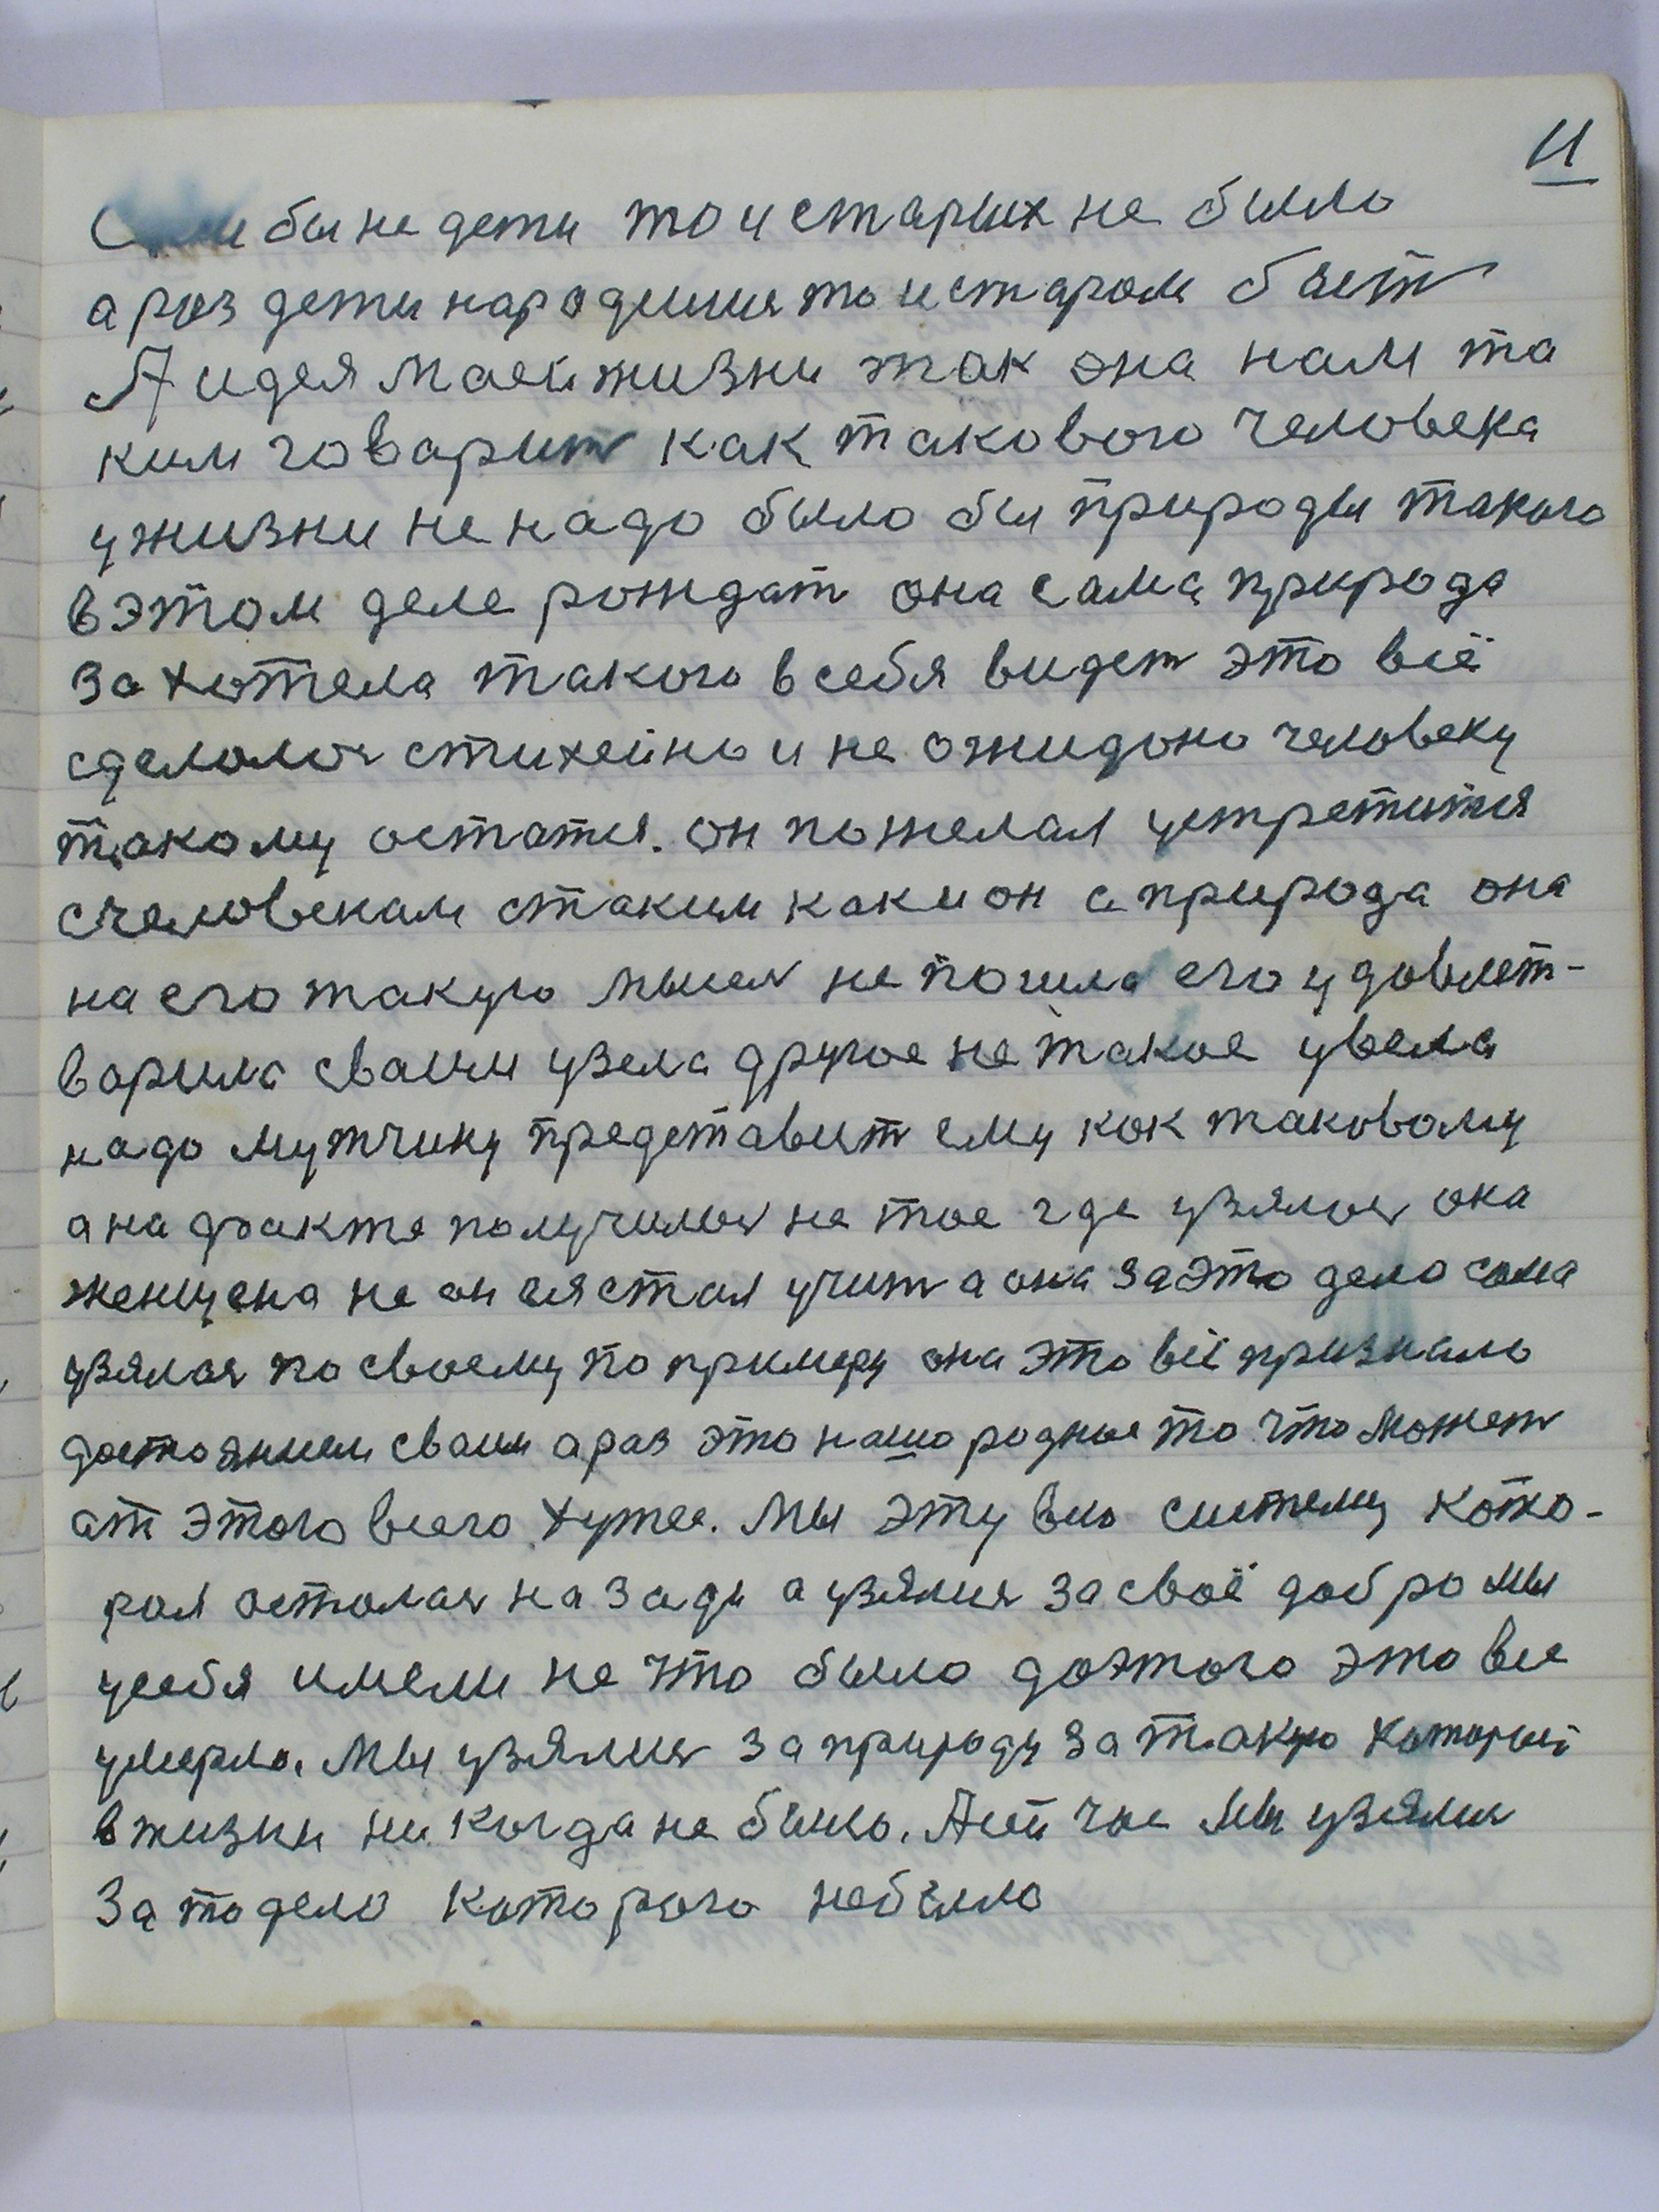 11
бы не дети то и старых не было
а раз дети народились то и старом быть
А идея маей жизни так она нам та
ким говарить как такового человека
у жизни не надо было бы природы такого
в этом деле рождат она сама природа
захотела такого в себя видет это всё
сделолось стихейно и не ожидоно человеку
такому остатся. он пожелал устретится
с человекам с таким как и он а природа она
на его такую мысль не пошла его удовлет-
ворила сваим узела другое не такое увела
надо мутчину представить ему как таковому
а на факте получилось не тое где узялось она
женщена не он ея стал учить а она за это дело сама
узялась по своему по примеру она это всё признало
достоянием сваим а раз это нашо родные то что можеть
ат этого всего хутее. Мы эту всю систему кото-
рая осталась на зади а узялись за своё добро мы
у себя имели не что было до этого это все
умерло. Мы узялись за природу за такую который
в жизни никогда не было. А сей час мы узялись
За то дело которого не было